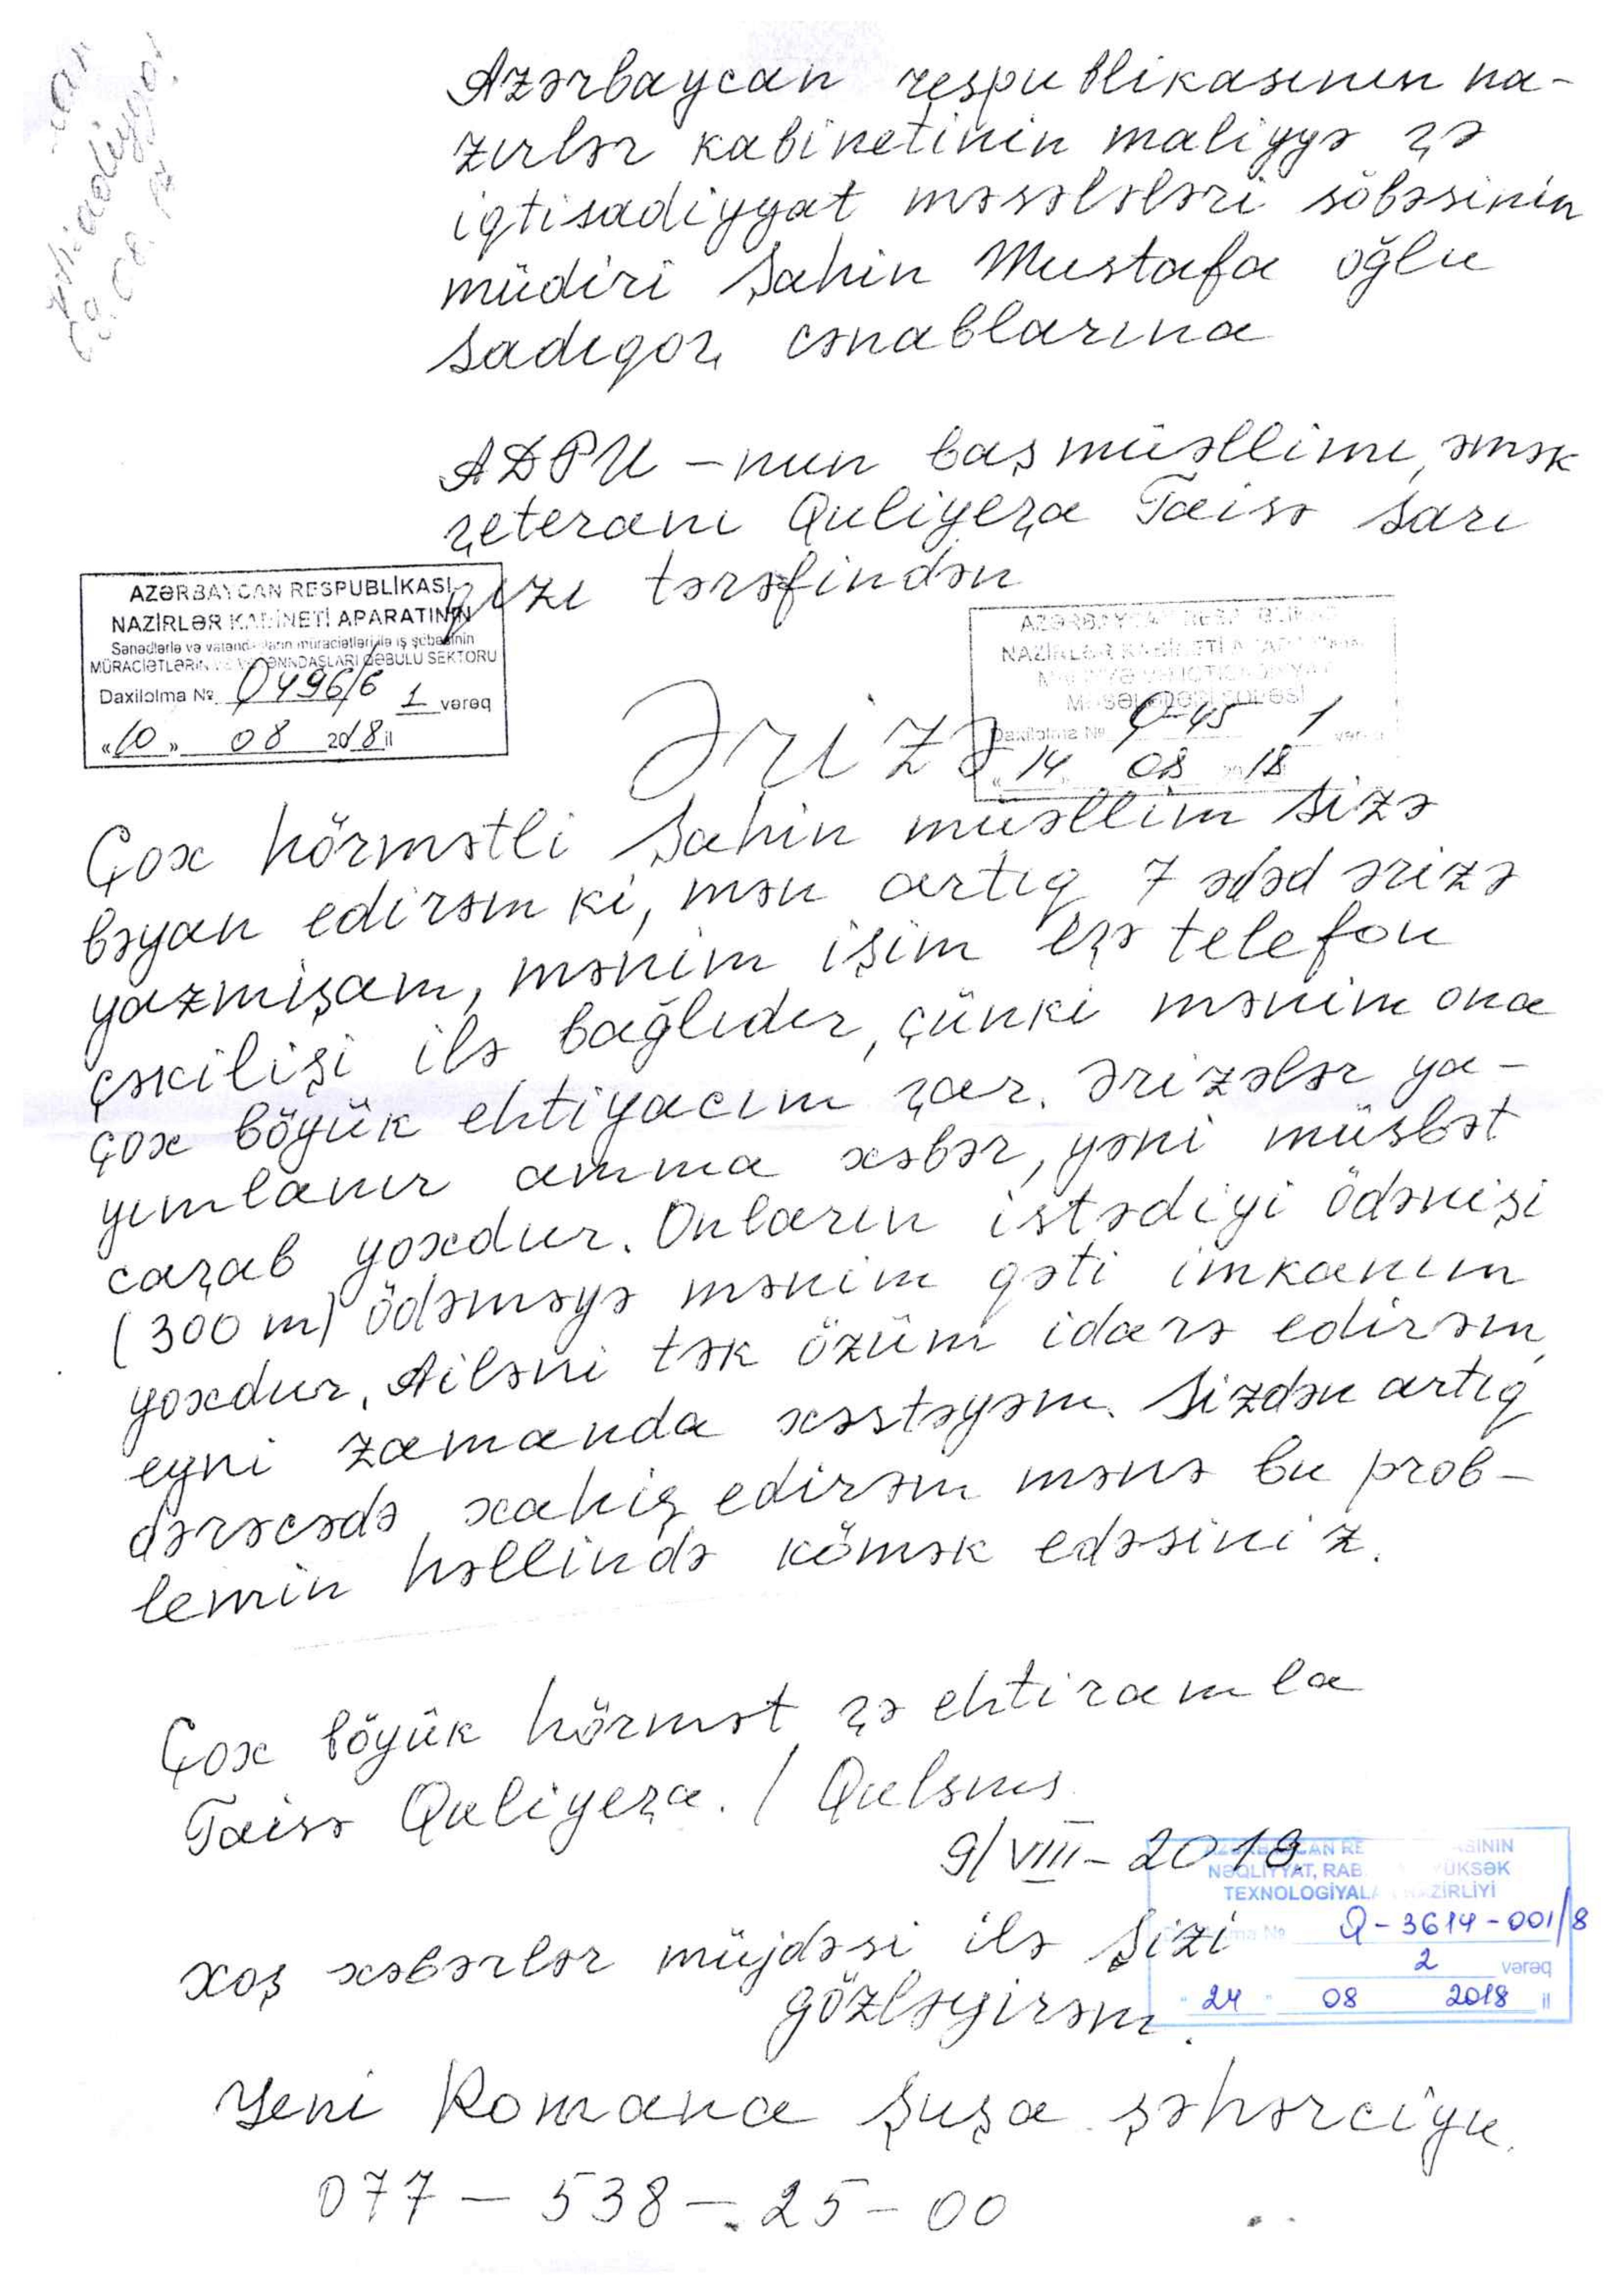 Azərbaycan respublikasının na-
zırlər kabinetinin maliyyə və
iqtisadiyyat məsələləri söbəsinin
müdiri Şahin Mustafa oğlu
Sadıqov cənablarına
ADPU-nun baş müəllimi, əmək
veteranı Quliyeva Taisə Sarı
qızı tərəfindən
AZƏRBAYCAN RESPUBLİKASI
NAZİRLƏR KABİNETİ APARATININ
Sənədlərlə və vətəndaşların müraciətləri ilə iş şöbəsinin
MÜRACİƏTLƏRİN VƏ VƏTƏNDAŞLARI QƏBULU SEKTORU
Daxilolma № Q496/6 1 vərəq
«10» 08 2018 il
AZƏRBAYCAN RESPUBLİKASI
NAZİRLƏR KABİNETİ APARATININ
MALİYYƏ VƏ İQTİSADİYYAT
MƏSƏLƏLƏRİ ŞÖBƏSİ
Daxilolma № Q-45 1 vərəq
«14» 08 2018
Ərizə
Çox hörmətli Şahin müəllim Sizə
bəyan edirəm ki, mən artıq 7 ədəd ərizə
yazmişam, mənim işim evə telefon
çəkilişi ilə bağlıdır, çünki mənim ona
çox böyük ehtiyacım var. Ərizələr ya-
yımlanır amma xəbər, yəni müsbət
cavab yoxdur. Onların istədiyi ödənişi
(300 m) ödəməyə mənim qəti imkanım
yoxdur. Ailəni tək özüm idarə edirəm,
eyni zamanda xəstəyəm. Sizdən artıq
dərəcədə xahiş edirəm mənə bu prob-
lemin həllində kömək edəsiniz.
Çox böyük hörmət və ehtiramla
Taisə Quliyeva. /
9/VIII-2018
AZƏRBAYCAN RESPUBLİKASININ
NƏQLİYYAT, RABİTƏ VƏ YÜKSƏK
TEXNOLOGİYALAR NAZİRLİYİ
Daxilolma № Q-3614-001/8
2 vərəq
"24" 08 2018 il
xoş xəbərlər müjdəsi ilə Sizi
gözləyirəm.
Yeni Romana Şuşa şəhərciyi.
077-538-25-00